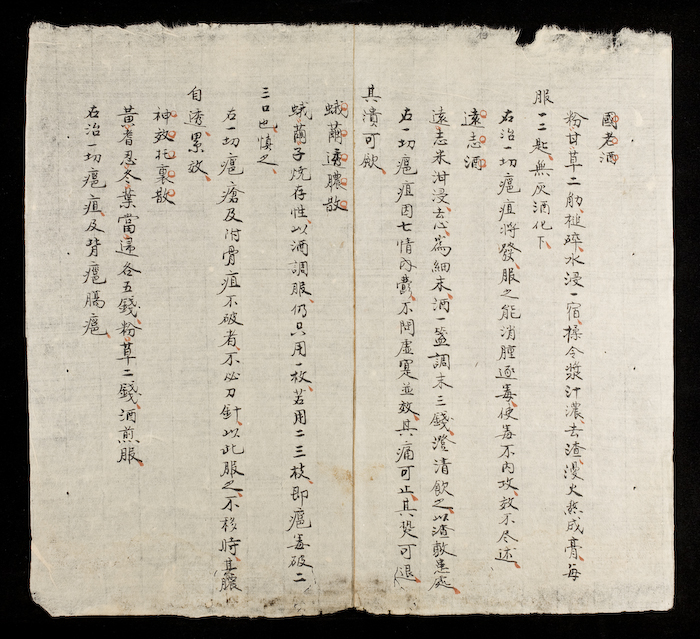 國老酒
粉甘草二觔、槌碎、水浸一宿、揉令漿汁濃、去渣、漫火熬成膏、每
服一二匙、無灰酒化下、
右治一切癰疽將發、服之能消腫逐毒、使毒不內攻、效不尽述、
遠志酒
遠志米泔浸、去心、為細末、酒一盞、調末三錢、澄清飲之、以渣敷患處、
右一切癰疽因七情內鬱、不問虛寔並效、其痛可止、其熱可退、
其潰可歛、
蛾繭透膿散
蛾繭子燒存性、以酒調服、仍只用一枚、若用二三枚、即癰毒破二
三口也、慎之、
右一切癰瘡及附骨疽不破者、不必刀針、以此服之、不移時、其膿
自透、累放、
神效托裏散
黃耆忍冬葉當歸各五錢、粉草二錢、酒煎服、
右治一切癰疽及背癰腸癰、